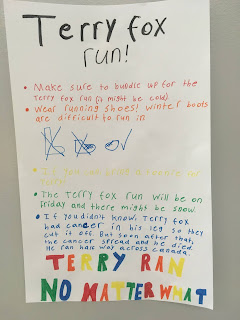 Terry fox
run!
• Make sure to bundle up for the
Terry fox run (it might be cold)
• Wear running shoes! Winter boots
are difficult to run in
• If you can bring a toonie for
Terry!
• The Terry fox run will be on
friday and there might be snow.
• If you didn't know, Terry fox
had cancer in his leg so they
cut it off. But soon after that,
the cancer spread and he died.
He ran half way across Canada.
TERRY RAN
NO MATTER WHAT